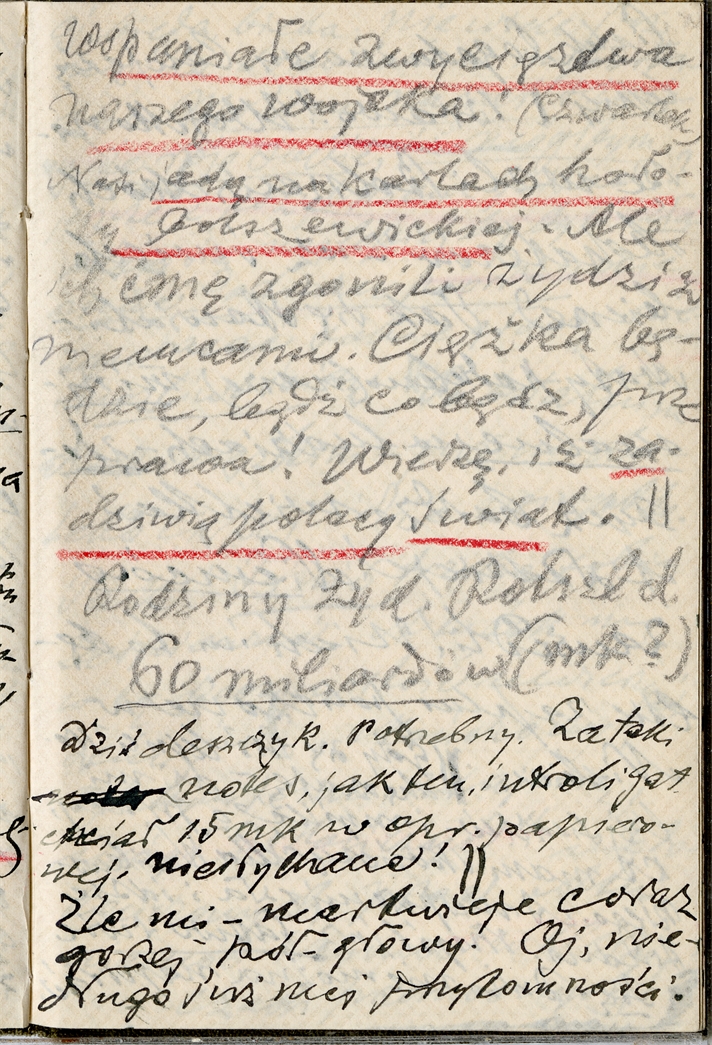 Wspaniałe zwycięzdwa
naszego wojska! (Czwartek)
Nasi jadą na karkach hoło-
ty bolszewickiej. Ale
ćmę zgonili żydzi z
niemcami. Ciężka bę-
dzie, bądź co bądź, prze
prawa! Wierzę, iż za-
dziwią polacy świat. ||
Rodziny Żyd. Rotszld.
60 miliardów (mk?)
Dziś deszczyk. Potrzebny. Za taki
notes, jak ten, introligat
chciał 15 mk w opr. papiero-
wej. niesłychane! ||
Źle mi – martwieje coraz
gorzej pół-głowy. Oj, nie-
długo już mej przytomności.